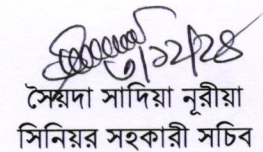 ৩/১২/২৪
সৈয়দা সাদিয়া নূরীয়া
সিনিয়র সহকারী সচিব